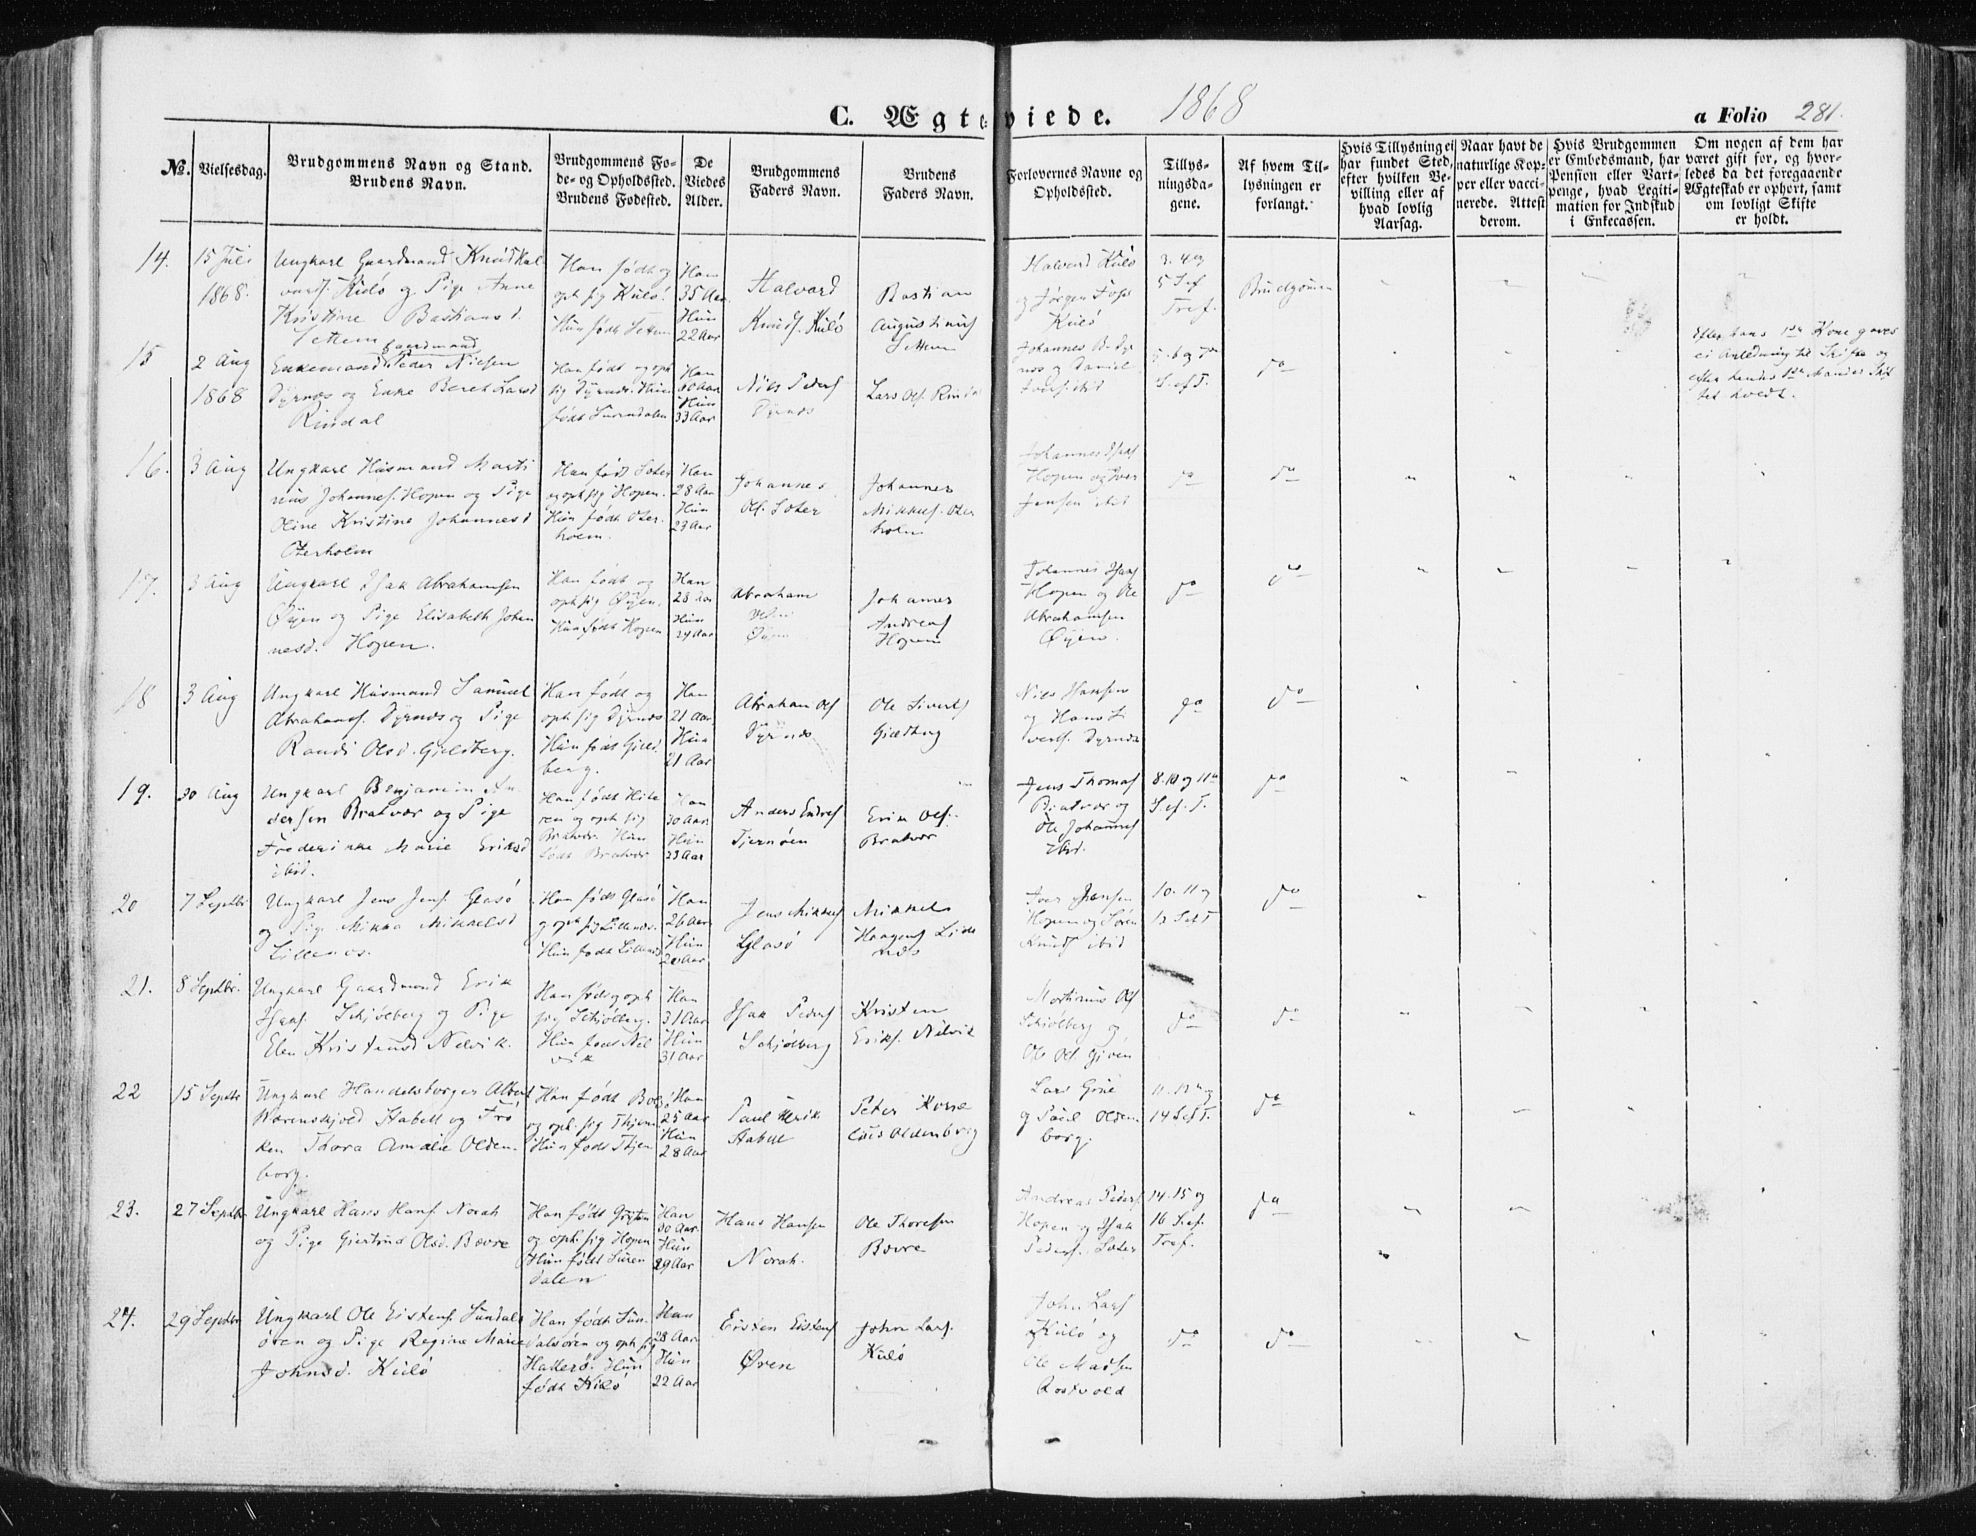 C. Ægteviede. 1868
a Folio 281.
No.
Vielsesdag.
Brudgommens Navn og Stand.
Brudens Navn.
Brudgommens Fo-
de- og Opholdssted.
Brudens Fødested.
De
Viedes
Alder.
Brudgommens
Faders Navn.
Brudens
Faders Navn.
Forlovernes Navne og
Opholdssted.
Tillys-
ningsda-
gene.
Af hvem Til-
lysningen er
forlangt.
Hvis Tillysning ei
har fundet Sted,
efter hvilken Be-
villing eller af
hvad lovlig
Aarsag.
Naar havt de
naturlige Kop-
per eller vacci-
nerede. Attest
derom.
Hvis Brudgommen
er Embedsmand, har
Pension eller Vart-
penge, hvad Legiti-
mation for Indskud
i Enkecassen.
Om nogen af dem har
været gift før, og hvor-
ledes da det foregaaende
Ægteskab er ophørt, samt
om lovligt Skifte
er holdt.
14.
15 Juli
1868.
Ungkarl Gaardmand Knud Hal-
vards. Kulø og Pige Anne
Kristine Bastiansd.
Settem
Han født og
oph sig Kulø.
Hun født Settem
Han
35 Aar
Hun
22 Aar
Halvard
Knuds. Kulø
Bastian
Augustinus
Settem
Halvard Kulø
og Jørgen Foss
Kulø
3. 4 og
5 S ef
Tref.
Brudgommen
15
2 Aug
1868
Gaardmand
Enkemand Peder Nielsen
Dyrnæs og Enke Bereth Larsd
Rindal
Han født og oph
sig Dyrnæs. Hun
født Surendalen
Han
60 Aar
Hun
33 Aar
Niels Peders
Dyrnæs
Lars Ols. Rindal
Johannes
Dyr
næs og Daniel
ibid
5. 6 og 7de
S. ef T.
do
Efter hans 1ste Kone gaves
ei Anledning til Skifte og
efter hendes 1ste Mand er Skif
tet
16.
3 Aug
Ungkarl Husmand Marti
nus Johannes. Hopen og Pige
Oline Kristine Johannesd
Oterholm
Han født Sæter
og oph sig Hopen.
Hun født Oter-
holm.
Han
28 Aar
Hun
23 Aar
Johannes
Ols. Sæter
Johannes
Mikkels. Oter
holm
Johannes Isaks
Hopen og Iver
Jensen ibid
do
do
17.
3 Aug
Ungkarl Isak Abrahamsen
Øyen og Pige Elisabeth Johan
nesd. Hopen.
Han født og
oph sig Øyen.
Hun født Hopen
Han
28 Aar
Hun
24 Aar
Abraham
Øyen
Johannes
Andreas
Hopen
Johannes Isaks
Hopen og Ole
Abrahamsen
Øyen.
do
do
18
3 Aug
Ungkarl Husmand Samuel
Abrahams. Dyrnæs og Pige
Randi Olsd. Gjeldberg.
Han født og
oph sig Dyrnæs
Hun født Gjeld
berg.
Han
21 Aar
Hun
21 Aar
Abraham Ols
Dyrnæs
Ole Siverts
Niels Hansen
og Hans Si
verts. Dyrnæs
do
do
19.
30 Aug
Ungkarl Benjamin An-
dersen Bratvær og Pige
Frederikke Marie Eriksd
ibid.
Han født Hitte
ren og oph sig
Bratvær. Hun
født Bratvær
Han
30 Aar
Hun
23 Aar
Anders Endres
Tjernøen
Erik Ols.
Bratvær
Jens Thomas
Bratvær og
Ole Johannes
ibid.
8. 10 og 11te
S. ef. T.
do
20
7 Septbr
Ungkarl Jens Jens. Glasø
og Pige Mikka Mikkelsd
Lillenes.
Han født Glasø
og oph sig Lillenes.
Hun født Lillenes
Han
26 Aar
Hun
20 Aar
Jens Mikkels
Glasø
Mikkel
Haagens Lille
næs
Iver Jensen
Hopen og Søren
Knuds ibid
10. 11 og
12 S ef T
do
21.
8 Septbr.
Ungkarl Gaardmand Erik
Isaks. Schjølberg og Pige
Elen Kristensd Nelvik.
Han født og oph
sig Schjølberg.
Hun født Nel
vik
Han
31 Aar
Hun
31 Aar
Isak Peders
Schjølberg
Kristen
Eriks. Nelvik
Martinus Ols
Schiølberg og
Ole Ols.
do
do
22
15 Septbr
Ungkarl Handelsborger Albert
Værenskjold Stabell og Frø
ken Thora Amalie Olden-
borg.
Han født Bols
og oph. sig Thjern
Hun født Thjern
Han
25 Aar
Hun
28 Aar
Paul Ulrik
Stabell
Peter
Oldenborg
Lars Grue
og Paul Olden-
borg.
11. 13de og
14 S ef T.
do
23.
27 Septbr
Ungkarl Hans Hans. Norah
og Pige Giertrud Olsd. Bævre
Han født Grytten
og oph. sig Hopen
Hun født Suren
dalen
Han
30 Aar
Hun
29 Aar
Hans Hansen
Norah.
Ole Thoresen
Bævre
Andreas Peders.
Hopen og Isak
Peders. Sæter
14. 15 og
16 S. ef.
Tref.
do
24.
29 Septbr
Ungkarl Ole Eistens. Sundals
øren og Pige Regine Marie
Johnsd. Kulø
Han født Sun-
dalsøren og oph sig
Hallerø. Hun
født Kulø
Han
28 Aar
Hun
22 Aar
Eisten Eistens
Øren
John Lars.
Kulø
John Lars
Kulø og
Ole Madsen
Rostvold
do
do